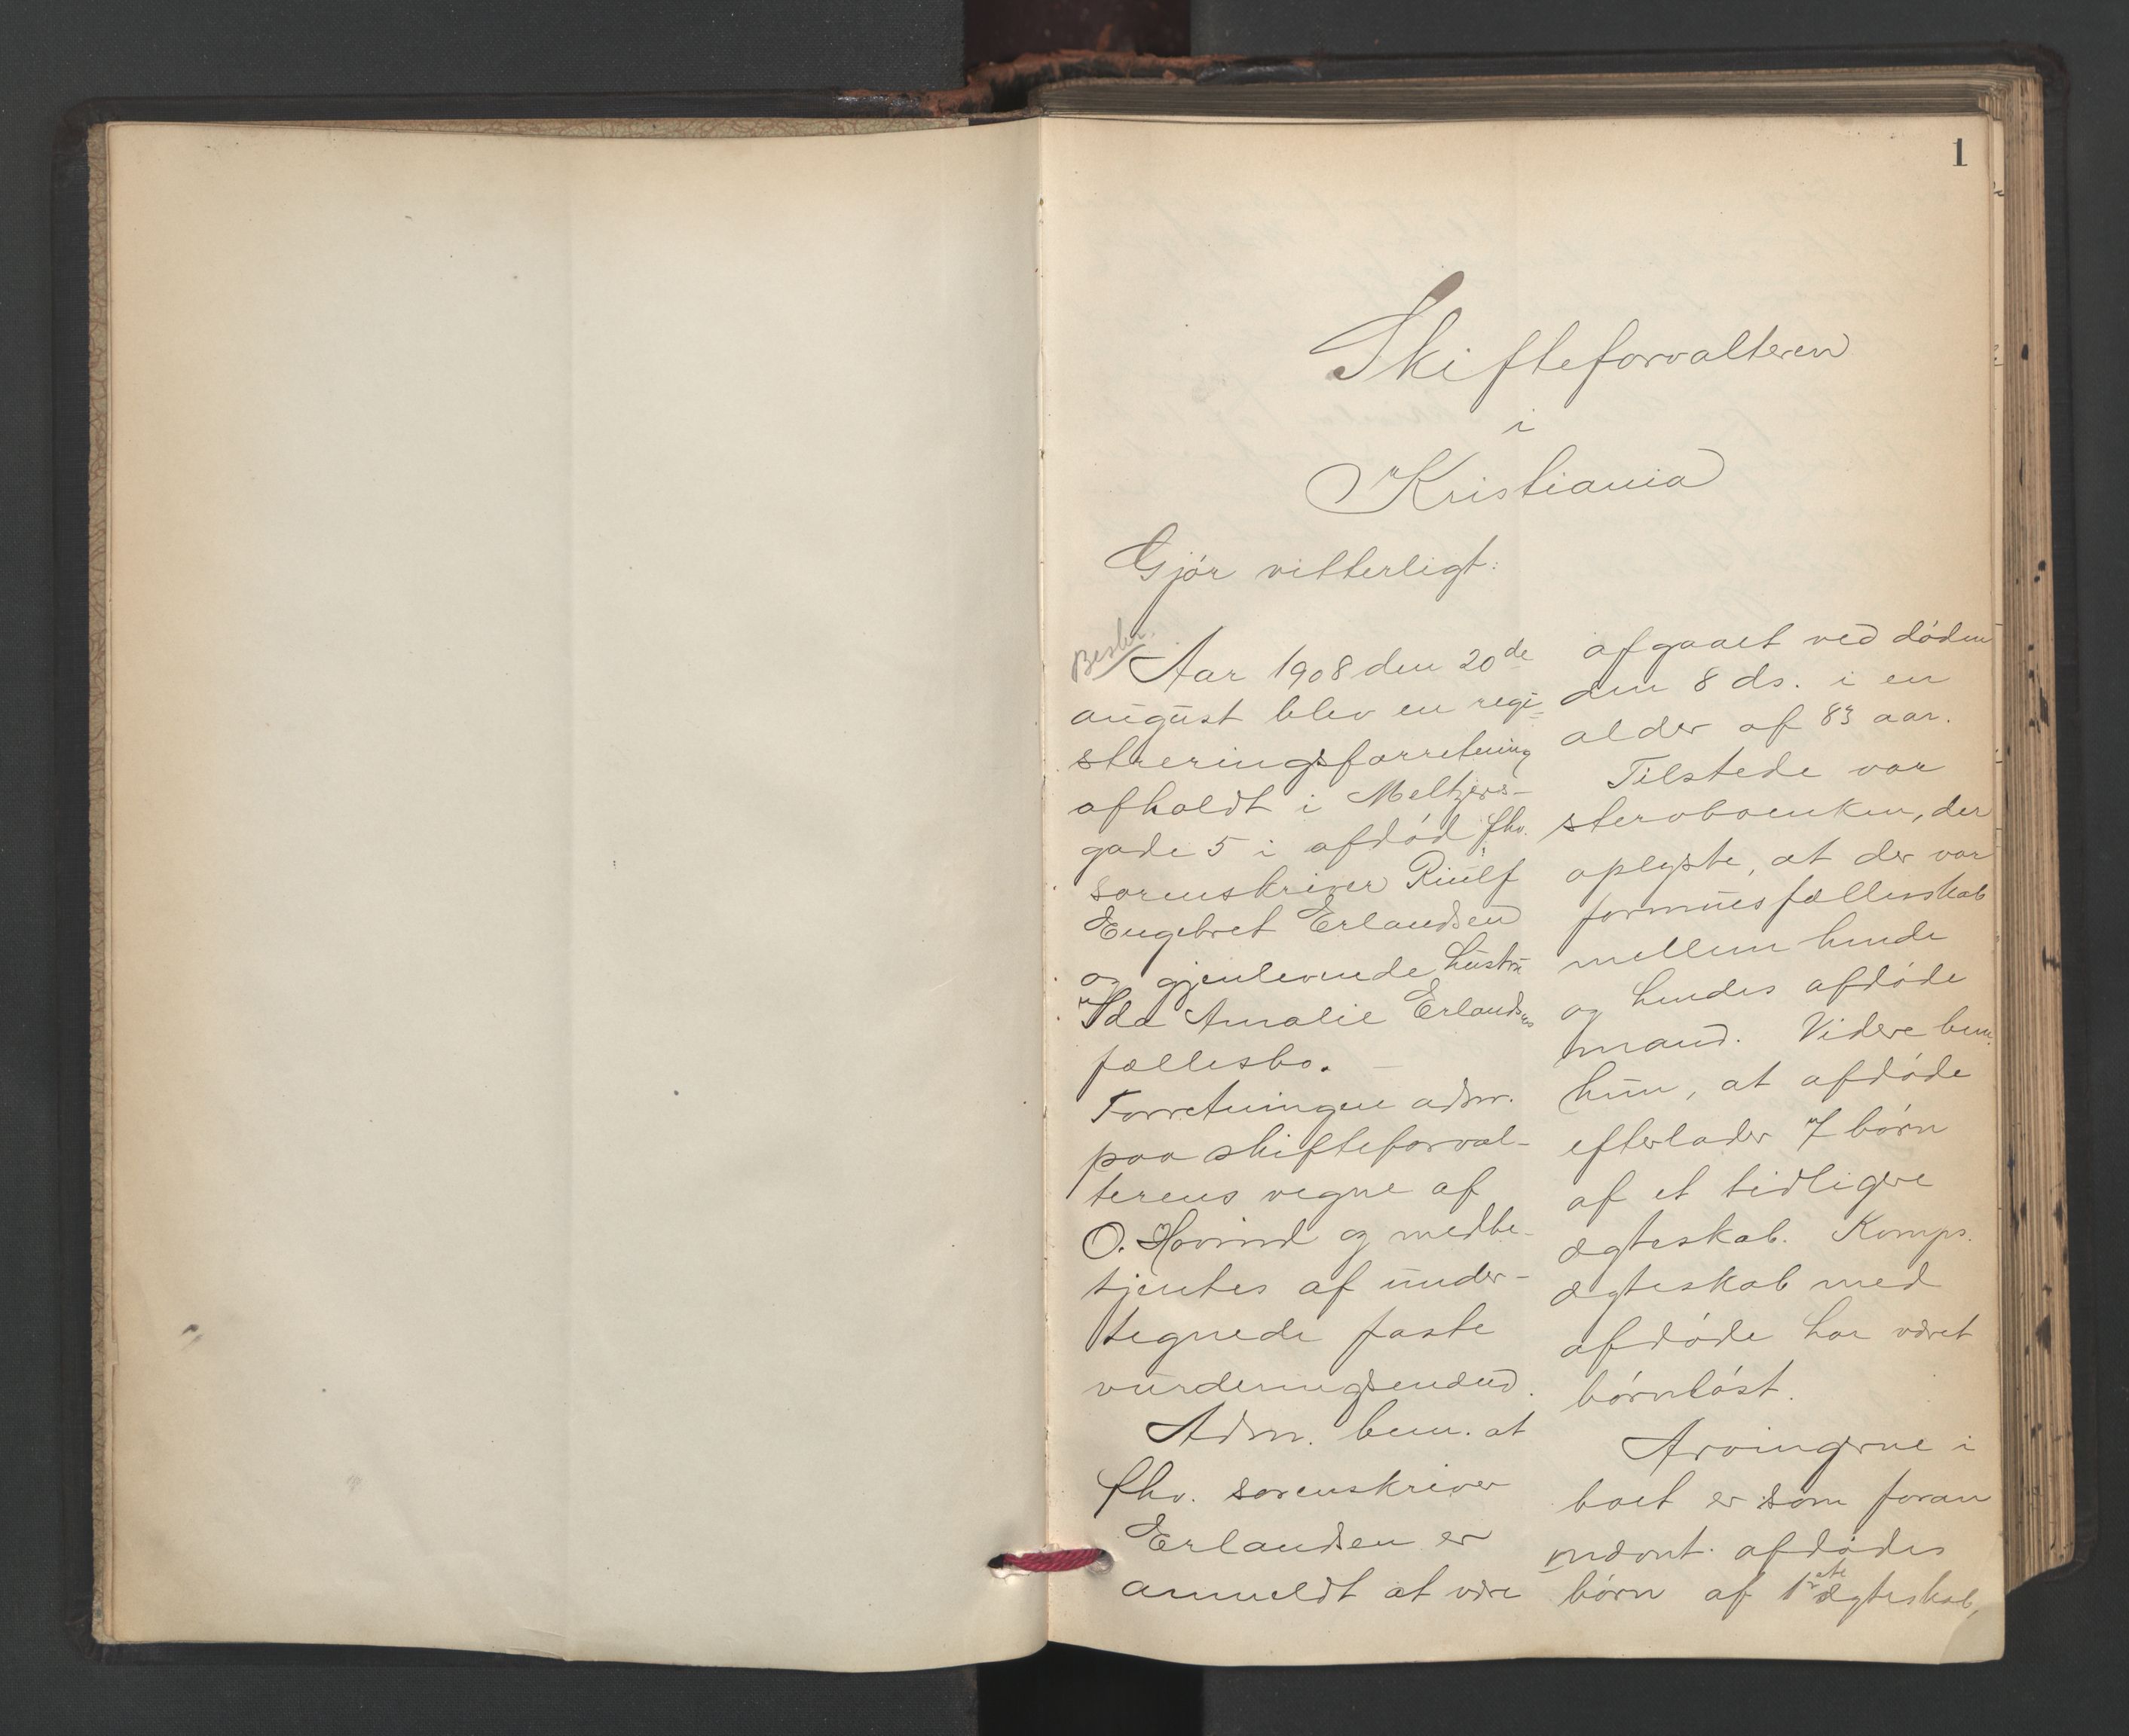 1
Skifteforvalteren
i
Kristiania
Gjör vitterligt:
Beslr.
Aar 1908 den 20de
august blev en regi-
streringsforretning
afholdt i Meltzers-
gade 5 i afdöd fhv.
sorenskriver Riulf
Engebret Erlandsen
og gjenlevende hustru
Ida Amalie Erlandsens
fællesbo.
Forretningen adm.
paa skifteforval-
terens vegne af
O. Hovind og medbe-
tjentes af under-
tegnede faste
vurderingsmænd.
Adm. bem. at
fhv. sorenskriver
Erlandsen er
anmeldt at være
afgaaet ved döden
den 8 ds. i en
alder af 83 aar.
Tilstede var
stervboenken, der
oplyste, at der var
formuesfællesskab
mellem hende
og hendes afdöde
mand. Videre bem.
hun, at afdöde
efterlader 7 börn
af et tidligere
ægteskab. Komps.
ægteskab med
afdöde har været
börnlöst.
Arvingerne i
boet er som foran
nævnt afdödes
börn af 1ste ægteskab,